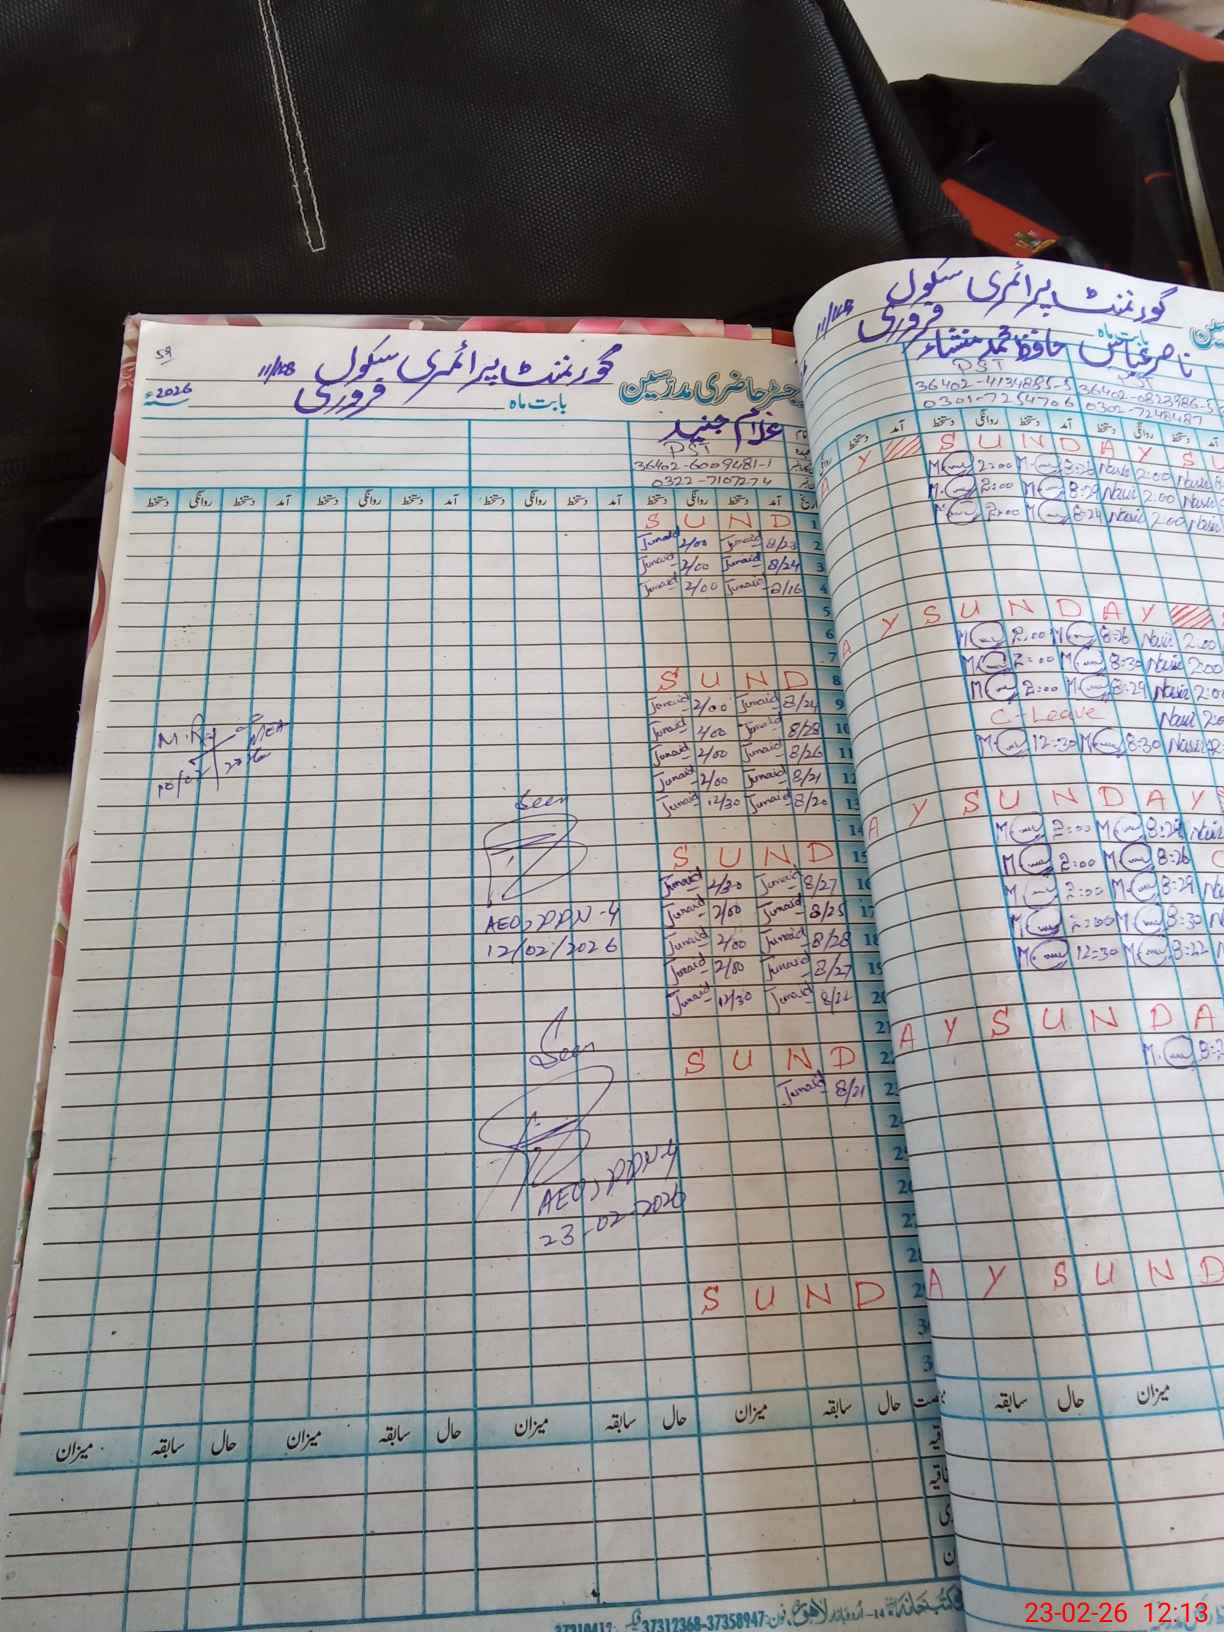 59
گورنمنٹ پرائمری سکول 11/1AB
رجسٹر حاضری مدرسین
بابت ماہ فروری 2026ء
غلام جنید
PST
36402-6009481-1
0322-7107274
آمد دستخط روانگی دستخط آمد دستخط روانگی دستخط آمد دستخط روانگی دستخط آمد دستخط روانگی دستخط
1 S U N D
2 8/23 Junaid 2/00 Junaid
3 8/24 Junaid 2/00 Junaid
4 8/16 Junaid 2/00 Junaid
5
6
7
8 S U N D
9 8/24 Junaid 2/00 Junaid
10 8/28 Junaid 2/00 Junaid
11 8/26 Junaid 2/00 Junaid
12 8/21 Junaid 2/00 Junaid
13 8/20 Junaid 12/30 Junaid
14
15 S U N D
16 8/27 Junaid 2/30 Junaid
17 8/25 Junaid 2/00 Junaid
18 8/28 Junaid 2/00 Junaid
19 8/27 Junaid 2/00 Junaid
20 8/22 Junaid 12/30 Junaid
21
22 S U N D
23 8/21 Junaid
S U N D
MEA
Seen
AEO, PPN-4
12/02/2026
Seen
AEO, PPN-4
23-02-2026
حال سابقہ میزان حال سابقہ میزان حال سابقہ میزان
14-اردو بازار لاہور، فون: 37358947-37312368
گورنمنٹ پرائمری سکول
بابت ماہ فروری
ناصر عباس حافظ محمد منشاء
PST PST
36402-4134885-5 36402-0823986-5
0301-7254706 0302-7248487
آمد دستخط روانگی دستخط آمد دستخط روانگی دستخط
A Y S U N D A Y S U
M 2:00 M Nasir 2:00 Nasir
M 2:00 M 8:29 Nasir 2:00 Nasir
M 2:00 M 8:24 Nasir 2:00 Nasir
A Y S U N D A Y
M 2:00 M 8:26 Nasir 2:00
M 2:00 M 8:30 Nasir 2:00
M 2:00 M 8:29 Nasir 2:00
C-Leave Nasir 2:00
M 12:30 M 8:30 Nasir
A Y S U N D A Y S
M 2:00 M Nasir
M 2:00 M 8:26
M 2:00 M 8:29
M 2:00 M 8:30
M 12:30 M 8:22
A Y S U N D A
M
A Y S U N D
حال سابقہ میزان
23-02-26 12:13